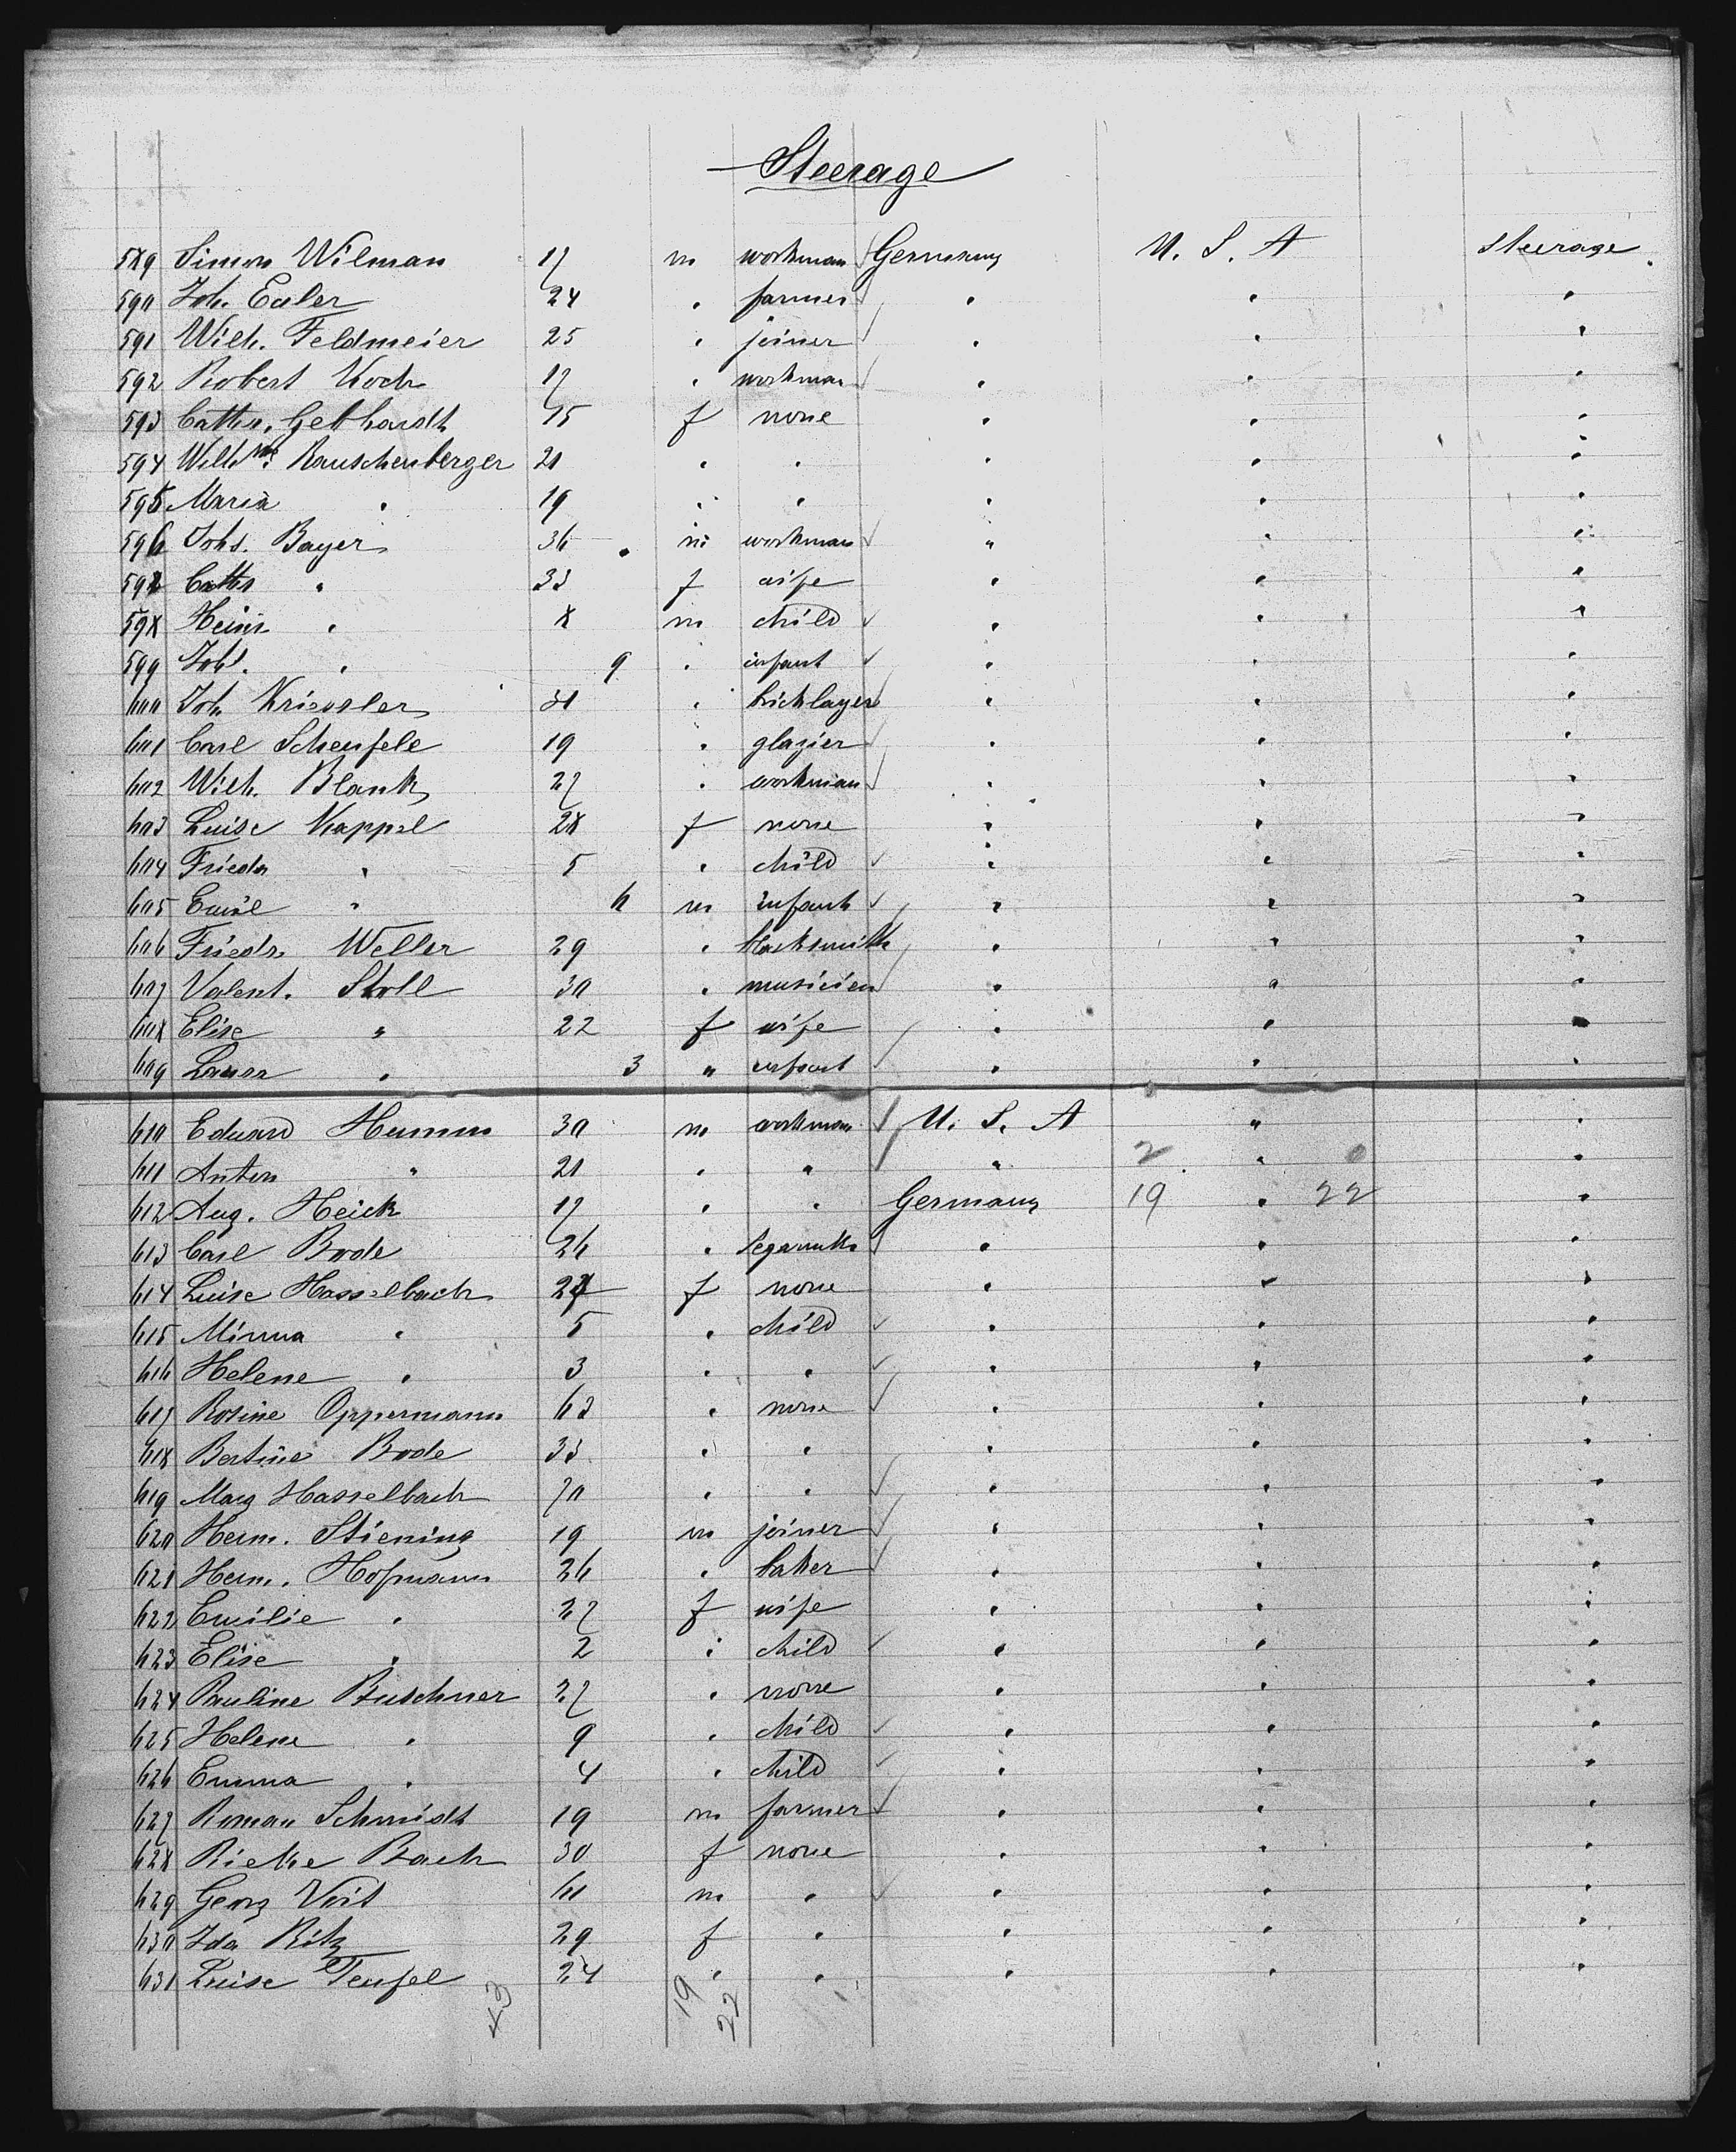 Steerage
589 Simon Wilman 17 m workman Germany U. S. A Steerage
590 Joh. Euler 24 " farmer " " "
591 Wilh. Feldmeier 25 " joiner " " "
592 Robert Koch 17 " workman " " "
593 Cathr. Gebhardt 15 f none " " "
594 Wilhme Rauschenberger 21 " " " " "
595 Maria " 19 " " " " "
596 Johs. Bayer 36 m workman " " "
597 Cathr " 33 f wife " " "
598 Heinr " 8 m child " " "
599 Johs. " 9 " infant " " "
600 Joh Kriessler 31 " bricklayer " " "
601 Carl Scheufele 19 " glazier " " "
602 Wilh. Blank 27 " workman " " "
603 Luise Kappel 28 f none " " "
604 Frieda " 5 " child " " "
605 Emil " 6 m infant " " "
606 Friedr. Weller 29 " blacksmith " " "
607 Valent. Stoll 30 " musicien " " "
608 Elise " 22 f wife " " "
609 Laura " 3 " infant " " "
610 Eduard Humm 30 m workman U. S. A " "
611 Anton " 21 " " " 2 " 0 "
612 Aug. Heick 17 " " Germany 19 " 22 "
613 Carl Bode 26 " " " "
614 Luise Hasselbach 27 f none " " "
615 Minna " 5 " child " " "
616 Helene " 3 " " " " "
617 Rosine Oppermann 63 " none " " "
618 Bertine Bode 33 " " " " "
619 Marg Hasselbach 70 " " " " "
620 Herm. Stiening 19 m joiner " " "
621 Herm. Hofmann 26 " baker " " "
622 Emilie " 27 f wife " " "
623 Elise " 2 " child " " "
624 Pauline Buschner 27 " none " " "
625 Helene " 9 " child " " "
626 Emma " 4 " child " " "
627 Roman Schmidt 19 m farmer " " "
628 Rieke Bach 30 f none " " "
629 Georg Veit 61 m " " " "
630 Ida Ritz 29 f " " " "
631 Luise Teufel 24 " " " " "
43 19 22